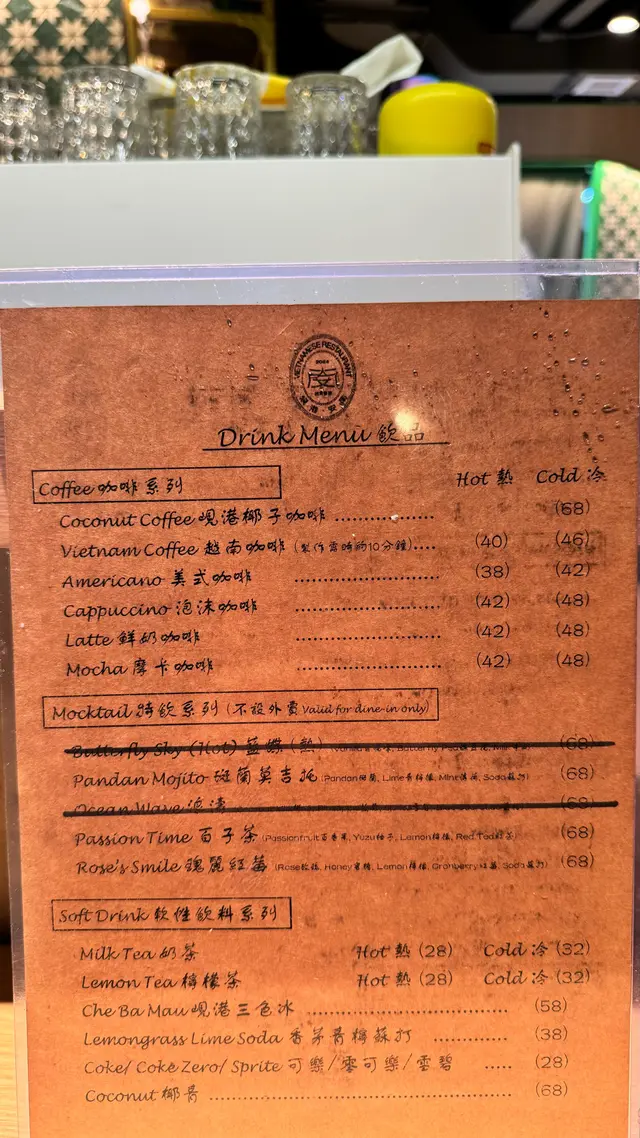 VIETNAMESE RESTAURANT
Drink Menu 飲品
Coffee 咖啡系列 Hot 熱 Cold 冷
Coconut Coffee 峴港椰子咖啡 .................. (68)
Vietnam Coffee 越南咖啡 (製作需時約10分鐘).... (40) (46)
Americano 美式咖啡 .......................... (38) (42)
Cappuccino 泡沫咖啡 .......................... (42) (48)
Latte 鮮奶咖啡 .......................... (42) (48)
Mocha 摩卡咖啡 .......................... (42) (48)
Mocktail 特飲系列 (不設外賣 Valid for dine-in only)
Butterfly Sky (Hot) 藍蝶 (熱) (68)
Pandan Mojito 斑蘭莫吉托 (Pandan班蘭, Lime青檸檬, Mint薄荷, Soda蘇打) (68)
Ocean Wave 浪濤 (68)
Passion Time 百子茶 (Passionfruit百香果, Yuzu柚子, Lemon檸檬, Red Tea紅茶) (68)
Rose's Smile 瑰麗紅莓 (Rose玫瑰, Honey蜜糖, Lemon檸檬, Cranberry紅莓, Soda蘇打) (68)
Soft Drink 軟性飲料系列
Milk Tea 奶茶 Hot 熱 (28) Cold 冷 (32)
Lemon Tea 檸檬茶 Hot 熱 (28) Cold 冷 (32)
Che Ba Mau 峴港三色冰 .................................... (58)
Lemongrass Lime Soda 香茅青檸蘇打 ............. (38)
Coke/ Coke Zero/ Sprite 可樂/零可樂/雪碧 ..... (28)
Coconut 椰青 ...................................................... (68)